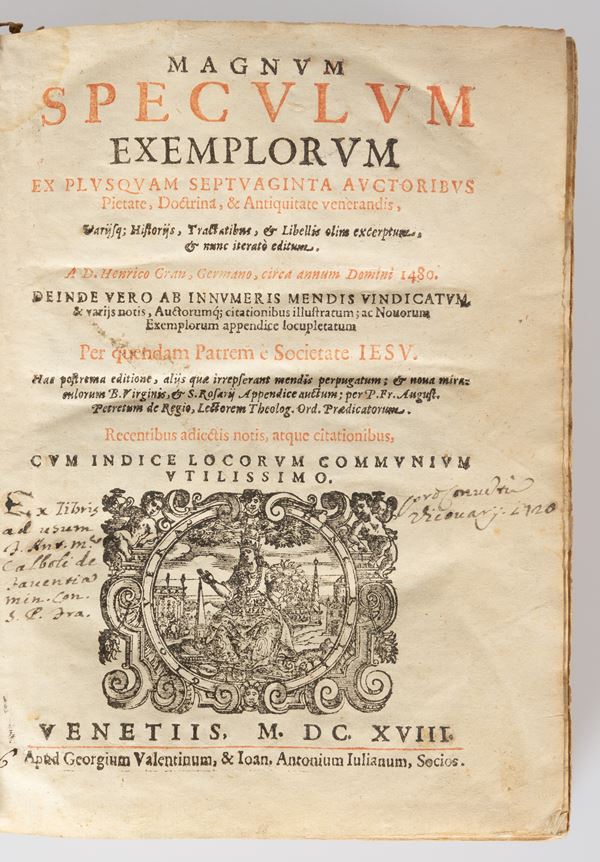 MAGNVM
SPECVLVM
EXEMPLORVM
EX PLVSQVAM SEPTVAGINTA AVCTORIBVS
Pietate, Doctrina, & Antiquitate venerandis,
Varijsq; Historijs, Tractatibus, & Libellis olim excerptum,
& nunc iteratò editum.
A D. Henrico Gran, Germano, circa annum Domini 1480.
DEINDE VERO AB INNVMERIS MENDIS VINDICATVM,
& varijs notis, Auctorumq; citationibus illustratum; ac Nouorum
Exemplorum appendice locupletatum
Per quendam Patrem è Societate IESV.
Hac postrema editione, alijs quæ irrepserant mendis perpugatum; & noua mira-
culorum B. Virginis, & S. Rosarij Appendice auctum; per P. Fr. August.
Petretum de Regio, Lectorem Theolog. Ord. Prædicatorum.
Recentibus adiectis notis, atque citationibus,
CVM INDICE LOCORVM COMMVNIVM
VTILISSIMO.
Ex libris
ad usum
Calboli de
Fauentia
min. Con.
S. P. Fra.
VENETIIS, M. DC. XVIII.
Apud Georgium Valentinum, & Ioan. Antonium Iulianum, Socios.